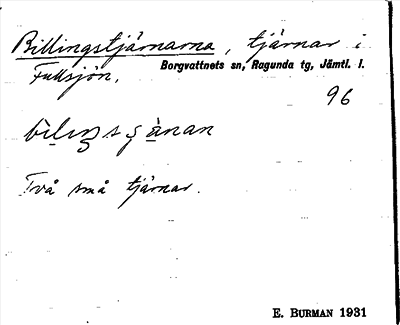 Billingstjärnarna, tjärnar i
Fuksjön, Borgvattnets sn, Ragunda tg, Jämtl. l.
96
Två små tjärnar.
E. BURMAN 1931